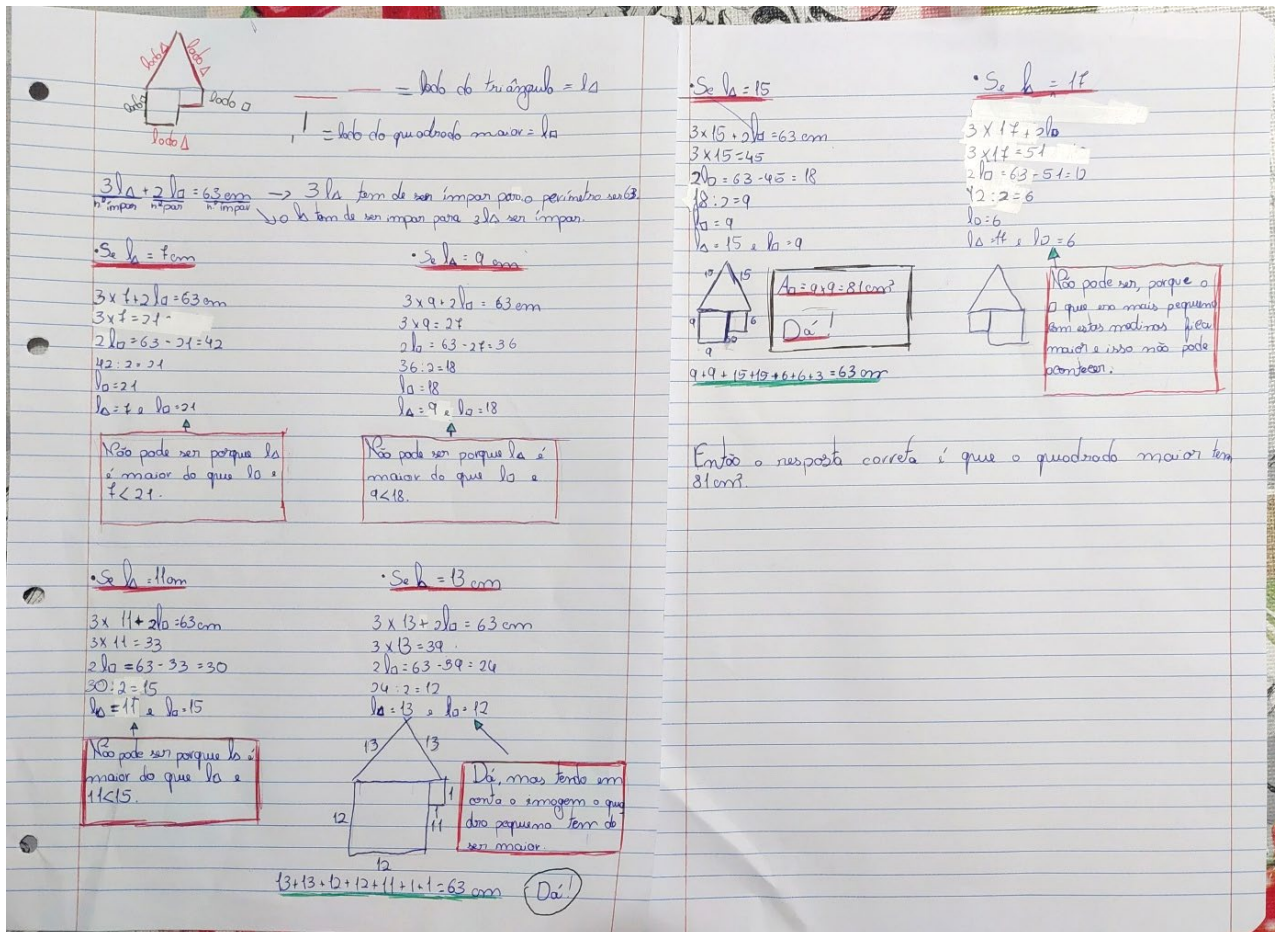 lado △
lado △
lado □
lado □
lado △
= lado do triângulo = l△
= lado do quadrado maior = l□
3l△ + 2l□ = 63 cm → 3l△ tem de ser ímpar para o perímetro ser 63.
nº ímpar nº par nº ímpar
↳ o l△ tem de ser impar para 3l△ ser ímpar.
• Se l△ = 7cm
3 x 7 + 2l□ = 63 cm
3 x 7 = 21
2l□ = 63 - 21 = 42
42 : 2 = 21
l□ = 21
l△ = 7 e l□ = 21
Não pode ser porque l△
é maior do que l□ e
7 < 21.
• Se l△ = 9 cm
3 x 9 + 2l□ = 63 cm
3 x 9 = 27
2l□ = 63 - 27 = 36
36 : 2 = 18
l□ = 18
l△ = 9 e l□ = 18
Não pode ser porque l△ é
maior do que l□ e
9 < 18.
• Se l△ = 11cm
3 x 11 + 2l□ = 63 cm
3 x 11 = 33
2l□ = 63 - 33 = 30
30 : 2 = 15
l△ = 11 e l□ = 15
Não pode ser porque l△ é
maior do que l□ e
11 < 15.
• Se l△ = 13 cm
3 x 13 + 2l□ = 63 cm
3 x 13 = 39
2l□ = 63 - 39 = 24
24 : 2 = 12
l△ = 13 e l□ = 12
13 13
12
1
1
11
12
Dá, mas tendo em
conta o imagem o qua
dro pequeno tem de
ser maior.
13+13+12+12+11+1+1=63 cm
Dá!
• Se l△ = 15
3 x 15 + 2l□ = 63 cm
3 x 15 = 45
2l□ = 63 - 45 = 18
18 : 2 = 9
l□ = 9
l△ = 15 e l□ = 9
15 15
9
6
9
A□ = 9 x 9 = 81 cm²
Dá!
9 + 9 + 15 + 15 + 6 + 6 + 3 = 63 cm
• Se l△ = 17
3 x 17 + 2l□
3 x 17 = 51
2l□ = 63 - 51 = 12
12 : 2 = 6
l□ = 6
l△ = 17 e l□ = 6
Não pode ser, porque o
□ que era mais pequeno
com estas medidas fica
maior e isso não pode
acontecer.
Então a resposta correta é que o quadrado maior tem
81 cm².